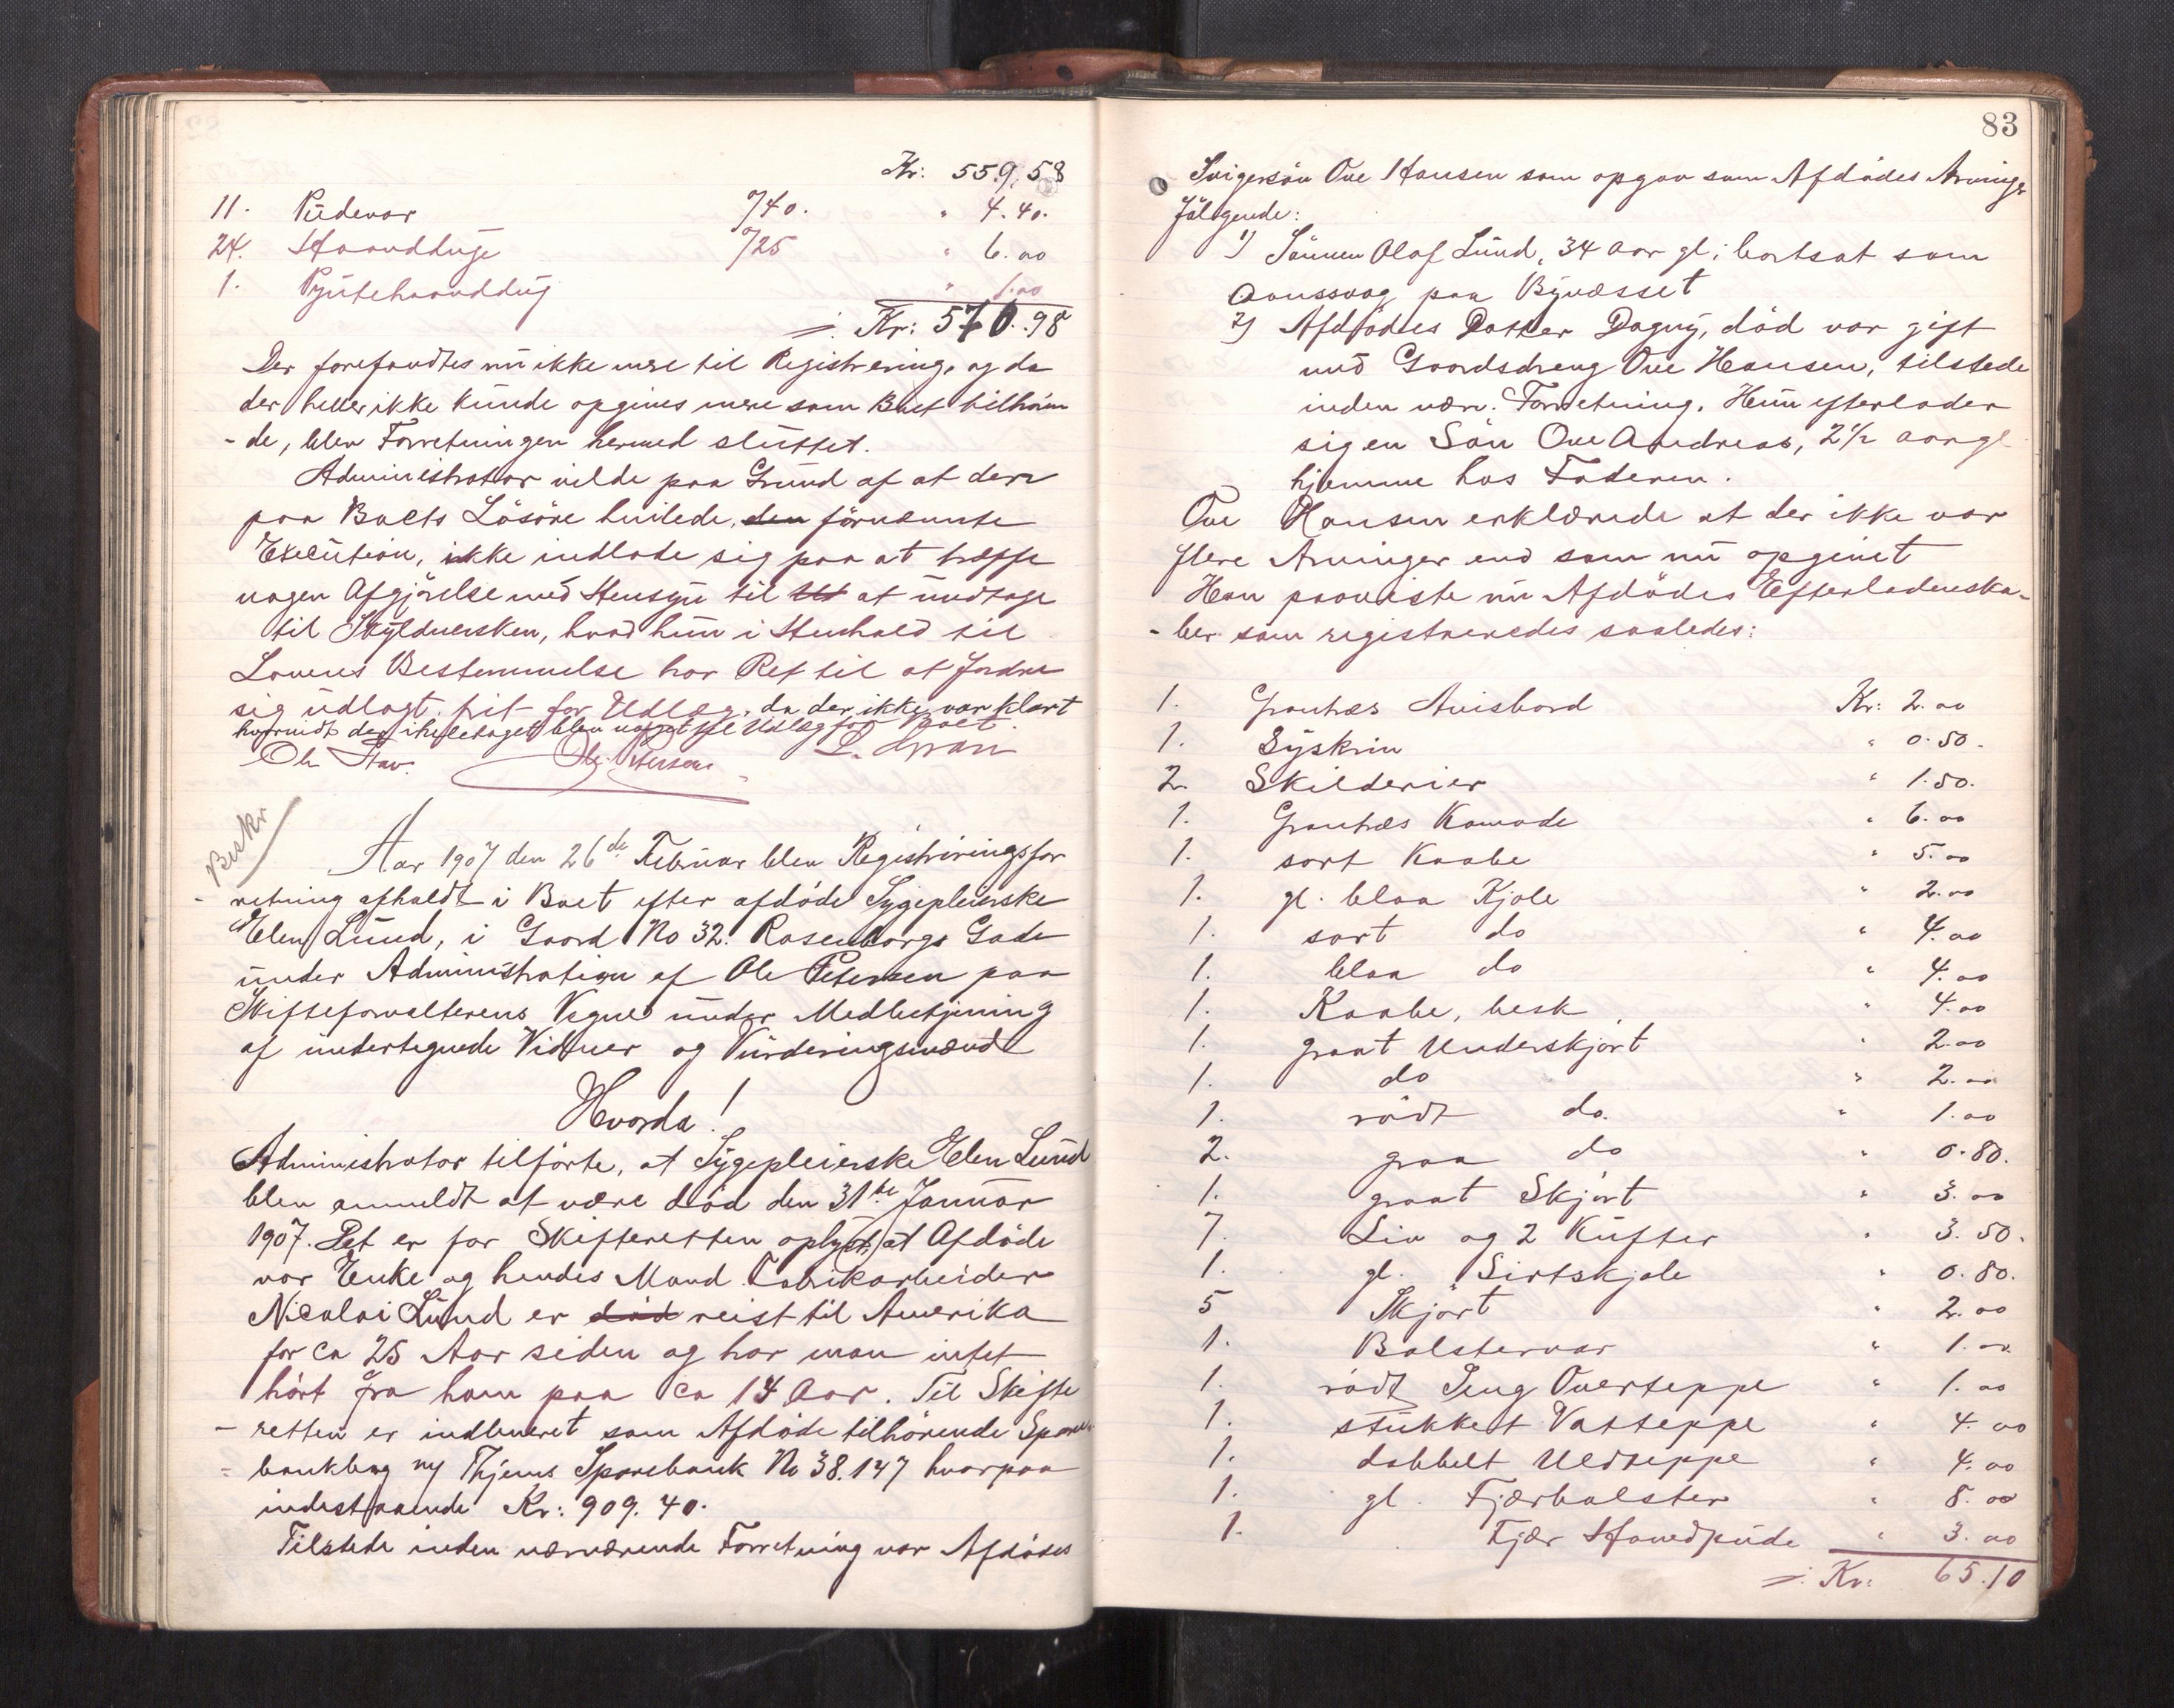 Kr: 559.58
11. Pudevar /40. " 4.40.
24. Haandduge /25 " 6.00
1. Pyntehaanddug " 1.00
=: Kr: 570.98
Der forefandtes nu ikke mere til Registrering, og da
der heller ikke kunde opgives mere som Boet tilhøren
-de, blev Forretningen hermed sluttet.
Administrator vilde paa Grund af at der
paa Boets Løsøre hvilede, den førnævnte
Execution, ikke indlade sig paa at træffe
nogen Afgjørelse med Hensyn til at undtage
til Skyldnersken, hvad hun i Henhold til
Lovens Bestemmelse har Ret til at fordre
sig udlagt frit for Udlæg, da der ikke var klart
hvorvidt der ikke blev Udlæg for Boet.
Ole Stav. Ole Petersen L. Svran
Beskr
Aar 1907 den 26de Februar blev Registreringsfor
-retning afholdt i Boet efter afdøde Sygepleierske
Elen Lund, i Gaard No 32. Rosenborgs Gade
under Administration af Ole Petersen paa
Skifteforvalterens Vegne under Medbetjening
af undertegnede Vidner og Vurderingsmænd
Hvorda!
Administrator tilførte, at Sygepleierske Elen Lund
blev anmeldt at være død den 31te Januar
1907. Det er for Skifteretten oplyst, at Afdøde
var Enke og hendes Mand Fabrikarbeider
Nicolai Lund er død reist til Amerika
for ca 25 Aar siden og har man intet
hørt fra ham paa ca 14 Aar. Til Skifte
-retten er indleveret som Afdøde tilhørende Spare-
-bankbog Thjems Sparebank No 38.147 hvorpaa
indestaaende Kr: 909.40.
Tilstede inden nærværende Forretning var Afdødes
83
Svigersøn Ove Hansen som opgav som Afdødes Arvinger
følgende:
1) Sønnen Olaf Lund, 34 aar gl; bortsat som
paa Bynæsset
2) Afdødes Datter Dagny, død var gift
med Gaardsdreng Ove Hansen, tilstede
inden nærv. Forretning. Hun efterlader
sig en Søn Ove Andreas, 2½ aar gl
hjemme hos Faderen.
Ove Hansen erklærede at der ikke var
flere Arvinger end som nu opgivet
Han paaviste nu Afdødes Efterladenska-
-ber som registreredes saaledes:
1. Grantræs Avisbord Kr: 2.00
1. Syskrin " 0.50.
2 Skilderier " 1.50.
1. Grantræs Komode " 6.00
1. sort Kaabe " 5.00
1. gl. blaa Kjole " 2.00
1. sort do " 4.00
1. blaa do " 4.00
1. Kaabe, besk " 4.00
1. graat Underskjørt " 2.00
1. do " 2.00
1. rødt do. " 1.00
2. graa do " 0.80.
1. graat Skjørt " 3.00
7. Liv og 2 Kufter " 3.50.
1. gl. Sirtskjole " 0.80.
5 Skjørt " 2.00
1. Bolstervar " 1.00
1. rødt Seng Overteppe " 1.00
1. stukket Vatteppe " 4.00
1. dobbelt Uldteppe " 4.00
1. gl. Fjærbolster " 8.00
1. Fjær Hovedpude " 3.00
=: Kr: 65.10